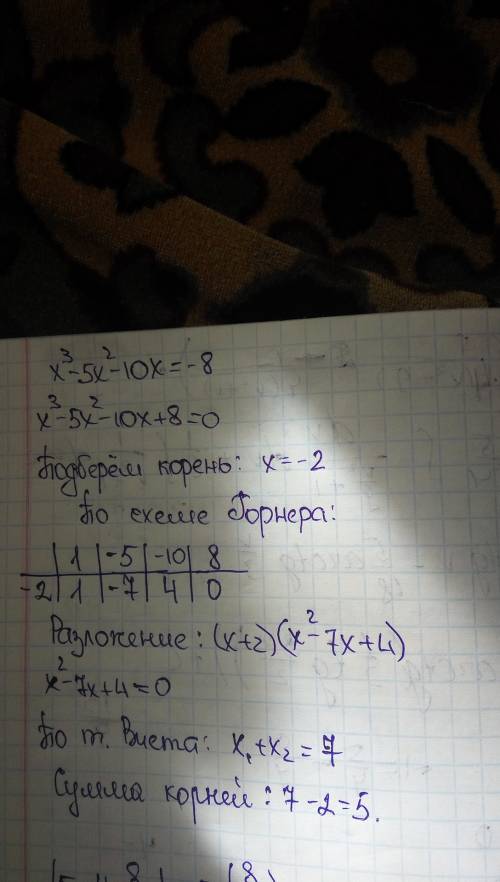 x³-5x²-10x=-8
x³-5x²-10x+8=0
Подберём корень: x=-2
По схеме Горнера:
| 1 | -5 | -10 | 8
-2 | 1 | -7 | 4 | 0
Разложение: (x+2)(x²-7x+4)
x²-7x+4=0
По т. Виета: x₁+x₂=7
Сумма корней: 7-2=5.